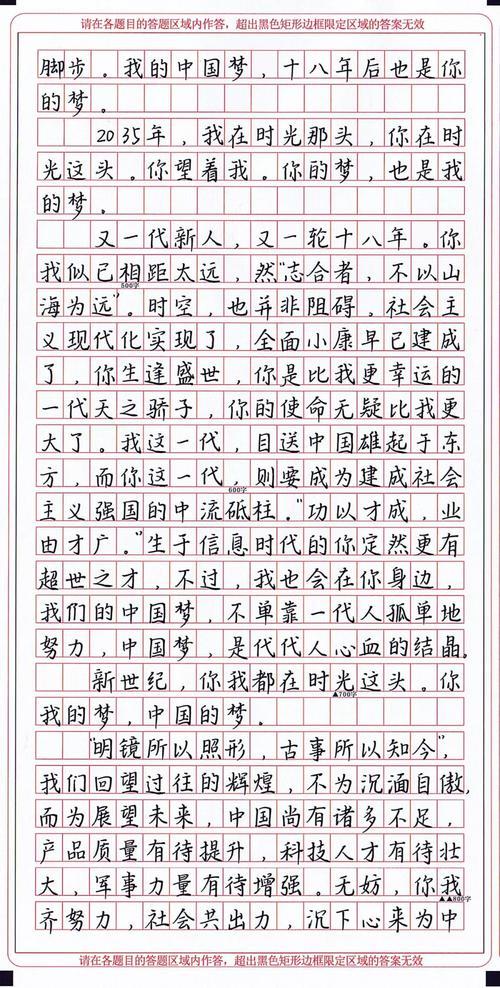 请在各题目的答题区域内作答，超出黑色矩形边框限定区域的答案无效
脚步。我的中国梦，十八年后也是你
的梦。
2035年，我在时光那头，你在时
光这头。你望着我。你的梦，也是我
的梦。
又一代新人，又一轮十八年。你
我似已相距太远，然“志合者，不以山
500字
海为远”。时空，也并非阻碍，社会主
义现代化实现了，全面小康早已建成
了，你生逢盛世，你是比我更幸运的
一代天之骄子，你的使命无疑比我更
大了。我这一代，目送中国雄起于东
方，而你这一代，则要成为建成社会
600字
主义强国的中流砥柱。“功以才成，业
由才广。”生于信息时代的你定然更有
超世之才，不过，我也会在你身边，
我们的中国梦，不单靠一代人孤单地
努力，中国梦，是代代人心血的结晶。
新世纪，你我都在时光这头。你
▲700字
我的梦，中国的梦。
“明镜所以照形，古事所以知今”，
我们回望过往的辉煌，不为沉湎自傲，
而为展望未来，中国尚有诸多不足，
产品质量有待提升，科技人才有待壮
大，军事力量有待增强。无妨，你我
▲▲800字
齐努力，社会共出力，沉下心来为中
请在各题目的答题区域内作答，超出黑色矩形边框限定区域的答案无效